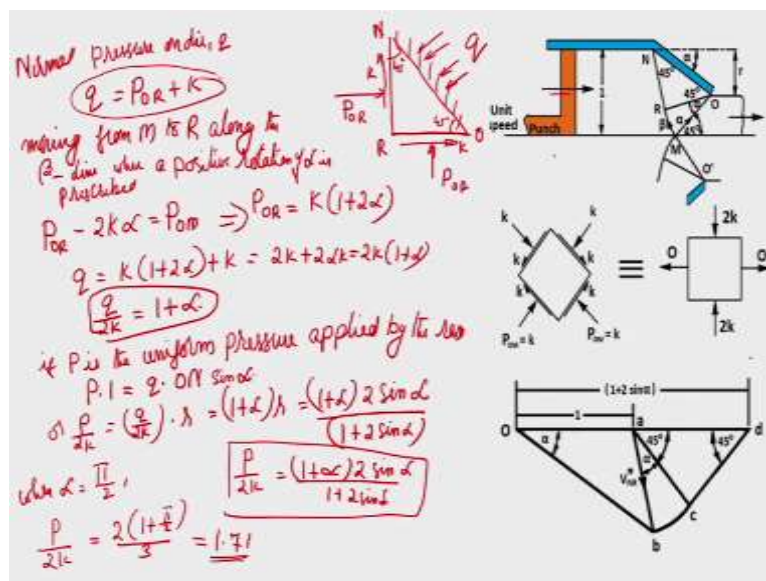 Normal pressure on die, q
q = P_OR + K
moving from M to R along the
β-line when a positive rotation of α is
prescribed
P_OR - 2Kα = P_OM => P_OR = K(1+2α)
q = K(1+2α)+K = 2K+2αK = 2K(1+α)
q/2K = 1+α.
if P is the uniform pressure applied by the ram
P.1 = q. ON sinα.
or P/2K = (q/2K). r = (1+α)r = (1+α) 2 sinα / (1+2 sinα)
P/2K = (1+α) 2 sinα / 1+2 sinα
when α = π/2,
P/2K = 2(1+π/2)/3 = 1.71
N
45°
K
q
P_OR
45°
R
K
O
P_OR
N
α
r
45°
45°
O
1
R
α
Unit
speed
Punch
β
α
45°
M
O'
k
k
k
k
k
k
P_OM = k
P_OM = k
≡
2k
O
O
2k
(1+2 sinα)
1
O
a
d
α
45°
45°
α
V*_NR
c
b